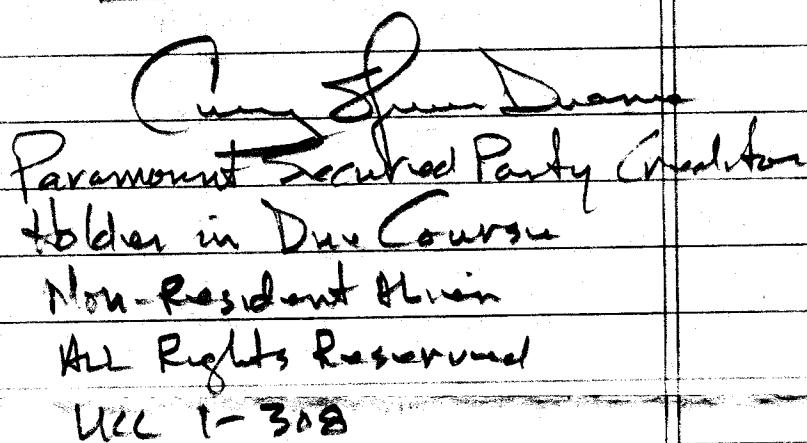 Paramount Secured Party Creditor
Holder in Due Course
Non-Resident Alien
All Rights Reserved
UCC 1-308